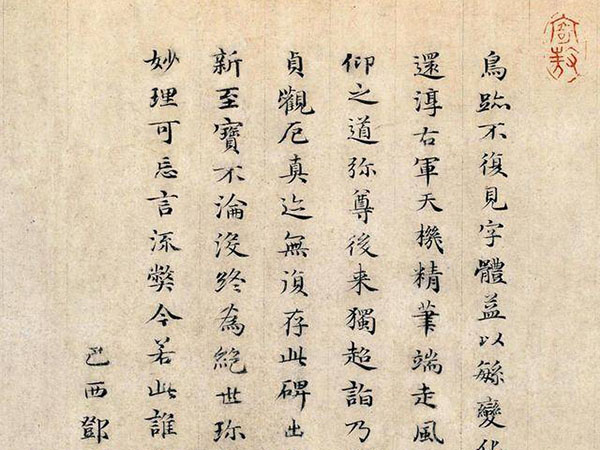 鳥跡不復見字體益以緐變
還淳右軍天機精筆端走風
仰之道弥尊後来獨超詣乃
貞觀厄真迹無復存此碑出
新至寶不淪没終為絶世珍
妙理可忘言流弊今若此誰
巴西鄧